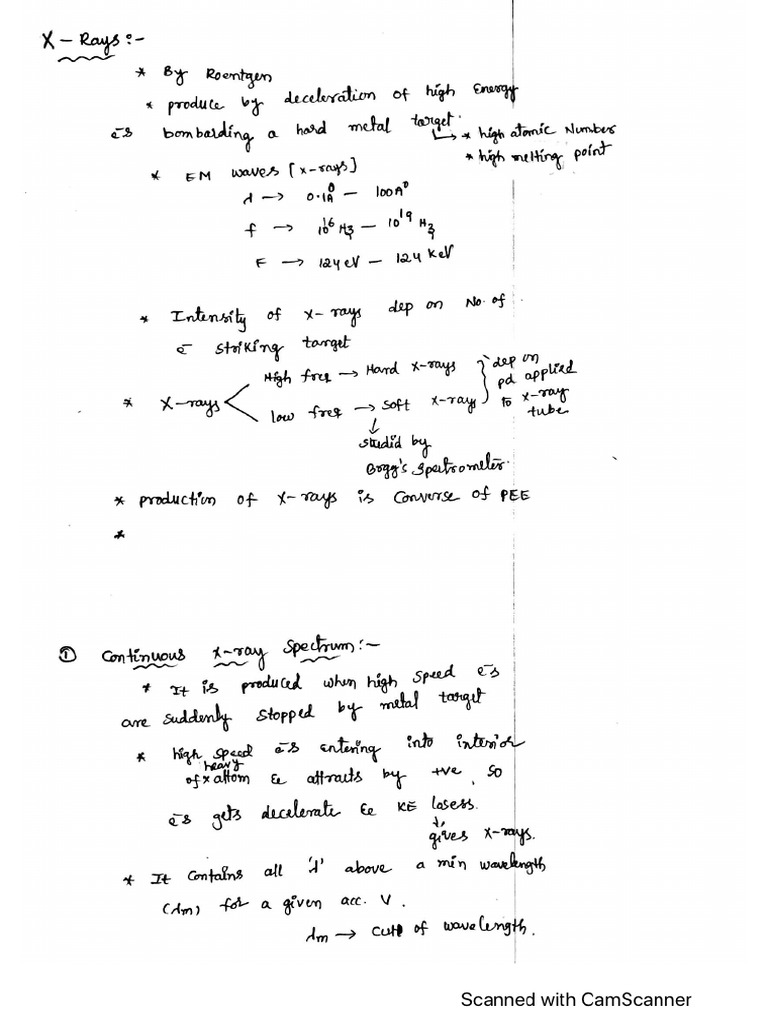 X-Rays:-
* By Roentgen
* produce by deceleration of high Energy
ēs bombarding a hard metal target.
↳ * high atomic Number
* high melting point
* EM waves [x-rays]
λ → 0.1A⁰ — 100A⁰
f → 10¹⁶Hz — 10¹⁹Hz
E → 124eV — 124 KeV
* Intensity of x-rays dep on No. of
ē striking target
* X-rays
High freq → Hard X-rays
low freq → soft X-ray
dep on
pd applied
to x-ray
tube
↓
studid by
Bragg's Spectrometer.
* production of X-rays is Converse of PEE
*
① Continuous X-ray Spectrum:-
* It is produced when high speed ēs
are suddenly stopped by metal target
* high speed ēs entering into interior
of heavy attom & attracts by +ve, so
ēs gets decelerate & KE losess.
↓
gives X-rays.
* It contains all 'λ' above a min wavelength
(λm) for a given acc. V.
λm → of wavelength.
Scanned with CamScanner